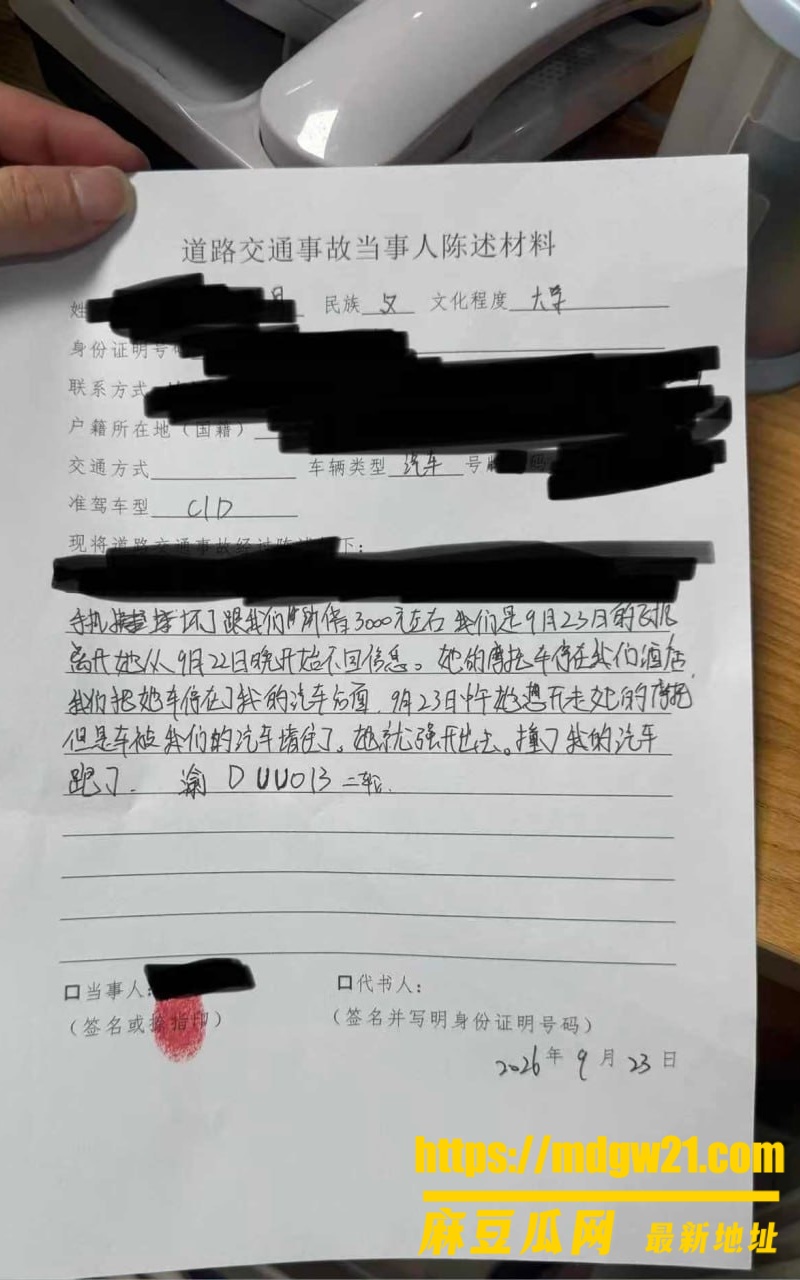 道路交通事故当事人陈述材料
姓 民族 汉 文化程度 大学
身份证明号码
联系方式
户籍所在地（国籍）
交通方式 车辆类型 汽车 号牌 码
准驾车型 C1D
现将道路交通事故经过陈述如下：
手机 摔坏了跟我们 借了3000元左右 我们是9月23日的飞机
离开她从9月22日晚开始不回信息。她的摩托车停在我们酒店.
我们把她车停在了我的汽车后面.9月23日中午她想开走她的摩托
但是车被我们的汽车堵住了。她就强开出去。撞了我的汽车
跑了. 渝DUU013 二轮.
口当事人：
（签名或捺指印）
口代书人：
（签名并写明身份证明号码）
2026年9月23日
https://mdgw21.com
麻豆瓜网 最新地址